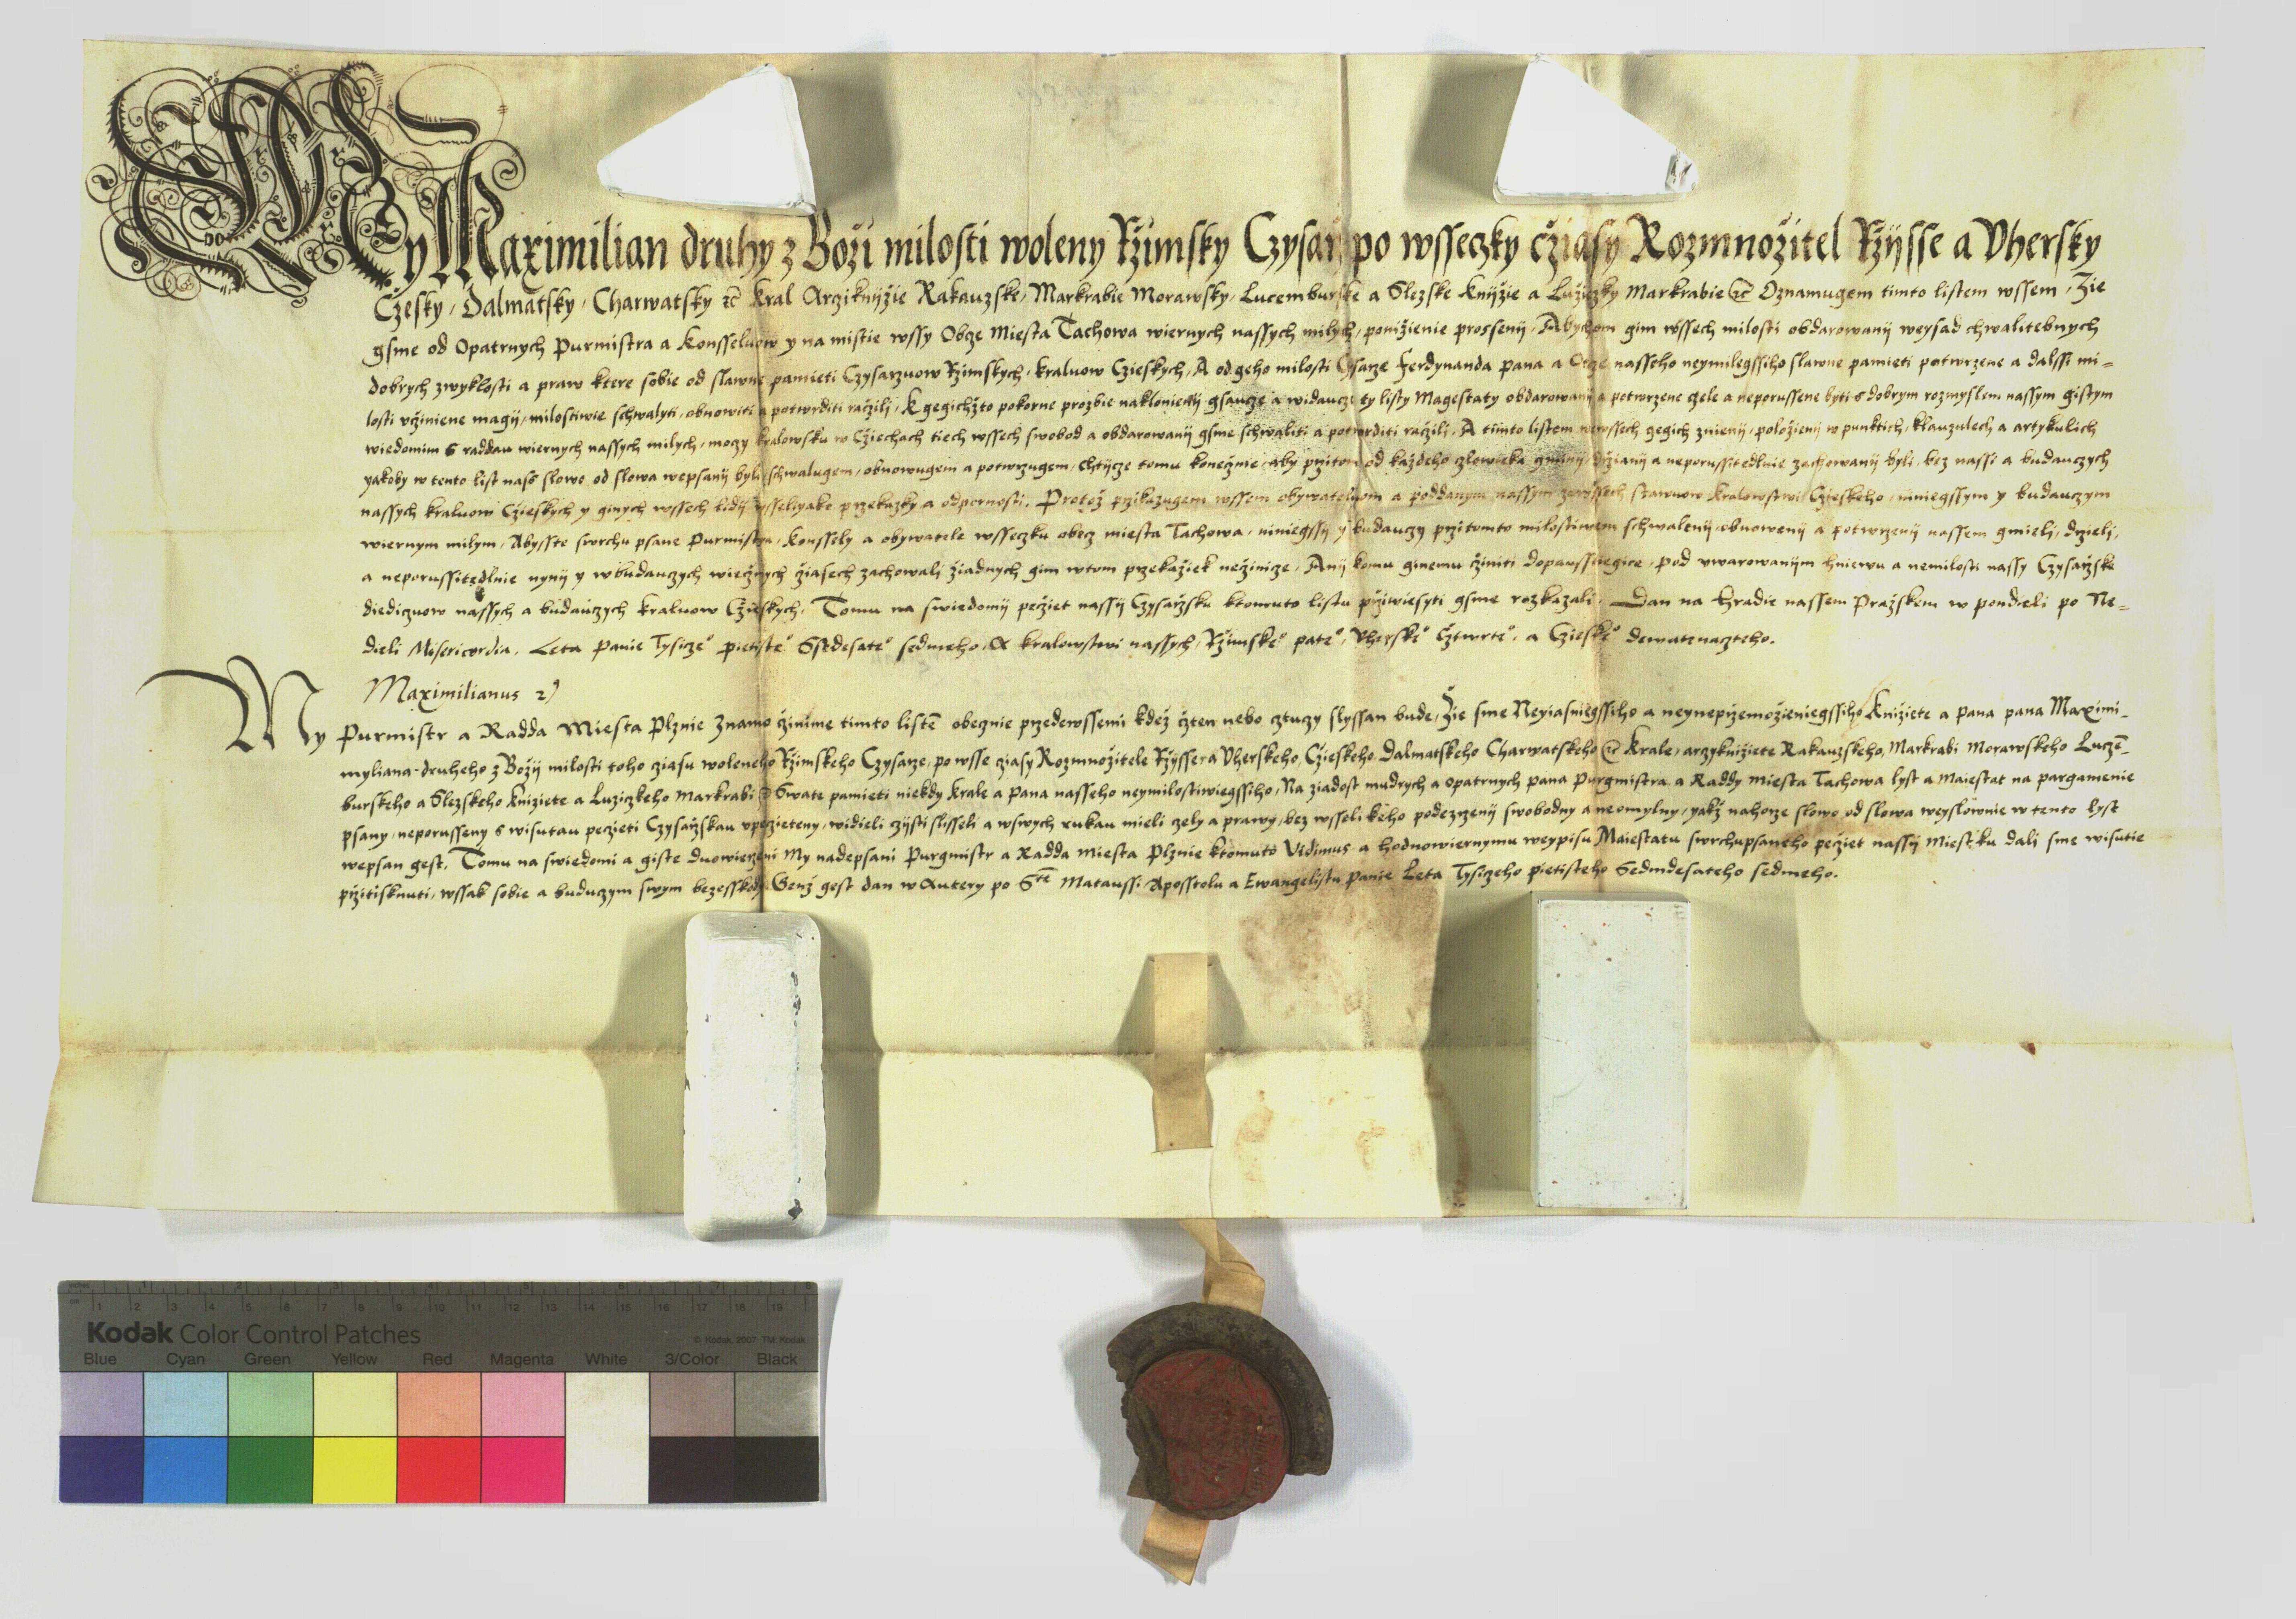 My Maximilian druhy z Boži milosti woleny Ržimsky Czysarz po wsseczky cžiasy Rozmnožitel Ržijsse a Vhersky
Cžesky, Dalmatsky, Charwatsky ꝛč Kral Arcziknijžie Rakauzske, Markrabie Morawsky, Lucemburske a Slezske Knijžie a Lužiczky Markrabie ꝛč Oznamugem timto listem wssem, Zie
gsme od Opatrnych Purmistra a Konsseluow y na mistie wssy Obcze Miesta Tachowa wiernych nassych milych, ponižienie prosseni, Abychom gim wssech milosti obdarowanij weysad chwalitebnych
dobrych zwyklosti a praw ktere sobie od slawne pamieti Czysarzuow Rzimskych, kraluow Czieskych, A od geho milosti Cysarze Ferdynanda pana a Otcze nasseho neymilegssiho slawne pamieti potwrzene a dalssi mi-
losti vcžiniene magij, milostiwie schwalyti, obnowiti a potwrditi račzili, K gegichžto pokorne prozbie naklonieni gsaucze a widaucze ty listy Magestaty obdarowani a potwrzene czele a neporussene byti s dobrym rozmyslem nassym gistym
wiedomim s raddau wiernych nassych milych, moczy kralowsku w Cžiechach tiech wssech swobod a obdarowanij gsme schwaliti a potwrditi račzili, A timto listem wewssech gegich znienij, položienij w punktich, klauzulech a artykulich
yakoby w tento list naß slowo od slowa wepsanij byli schwalugem, obnowugem a potwrzugem, chtijcze tomu konečznie, aby przitom od každeho czlowieka gmini, držianij a neporussitedlnie zachowanij byli, bez nassi a budauczych
nassych kraluow Cžieskych y ginych wssech lidij wsseliyake przekazky a odpornosti. Protož przikazugem wssem obywateluom a poddanym nassym zewssech stawuow Kralowstwi Cžieskeho, niniegssym y budauczym
wiernym milym, Abysste swrchu psane Purmistra, Konssely a obywatele wsseczku obecz miesta Tachowa, niniegssij y budauczy przitomto milostiwem schwalenij obnowenij a potwrzenij nassem gmieli, držieli,
a neporussitedlnie nynij y wbudauczych wiecžnych cžiasech zachowali žiadnych gim wtom przekažiek nečzinicze, Anij komu ginemu cžiniti dopausstiegice, pod vwarowanijm hniewu a nemilosti nassy Czysařzske
diediczuow nassych a budauczych kraluow Cžieskych, Tomu na swiedomij pecžiet nassij Czysařzsku ktomuto listu přziwiesyti gsme rozkazali. Dan na Hradie nassem Pražskem w pondieli po Ne-
dieli Misericordia, Leta Panie Tysicze° pietiste° Sstdesate° sedmeho, A kralowstwi nassych, Ržimske° pate°, Vherske° Cžtwrte°, a Czieske° dewatenaczteho.
Maximilianus 2)
My Purmistr a Radda Miesta Plznie Znamo cžinime timto listē obecznie przedewssemi kdež cžten nebo cztuczy slyssan bude, Žie sme Neyiasniegssiho a neynepržemožieniegssiho Knižiete a pana pana Maximi-
myliana druheho z Božij milosti toho cziasu woleneho Ržimskeho Czysarze, po wsse cziasy Rozmnožitele Ržijsse a Vherskeho, Cžieskeho, Dalmatskeho Charwatskeho ꝛč Krale, arcyknižiete Rakauzskeho, Markrabi Morawskeho Luczē-
burskeho a Slezskeho Knižiete a Luziczkeho Markrabi ꝛč Swate pamieti niekdy Krale a Pana nasseho neymilostiwiegssiho, Na ziadost mudrych a opatrnych pana Purgmistra a Raddy miesta Tachowa lyst a Maiestat na pargamenie
psany, neporusseny s wisutau pecžieti Czysařzskau vpeczieteny, widieli cžijsti slisseli a wswych rukau mieli czely a prawy, bez wsselikeho podezrzenij swobodny a neomylny, yakž nahorze slowo od slowa weyslownie w tento lyst
wepsan gest. Tomu na swiedomi a giste duowierzeni My nadepsani Purgmistr a Radda miesta Plznie ktomuto Vidimus a hodnowiernymu weypisu Maiestatu swrchupsaneho pecžiet nassij Miestsku dali sme wisutie
pržitisknuti, wssak sobie a buduczym swym bezesskody, Genž gest dan w Autery po Sté Mataussi Aposstolu a Ewangelistu Panie Leta Tysiczeho pietisteho Sedmdesateho sedmeho.
Kodak Color Control Patches
© Kodak, 2007 TM: Kodak
Blue Cyan Green Yellow Red Magenta White 3/Color Black